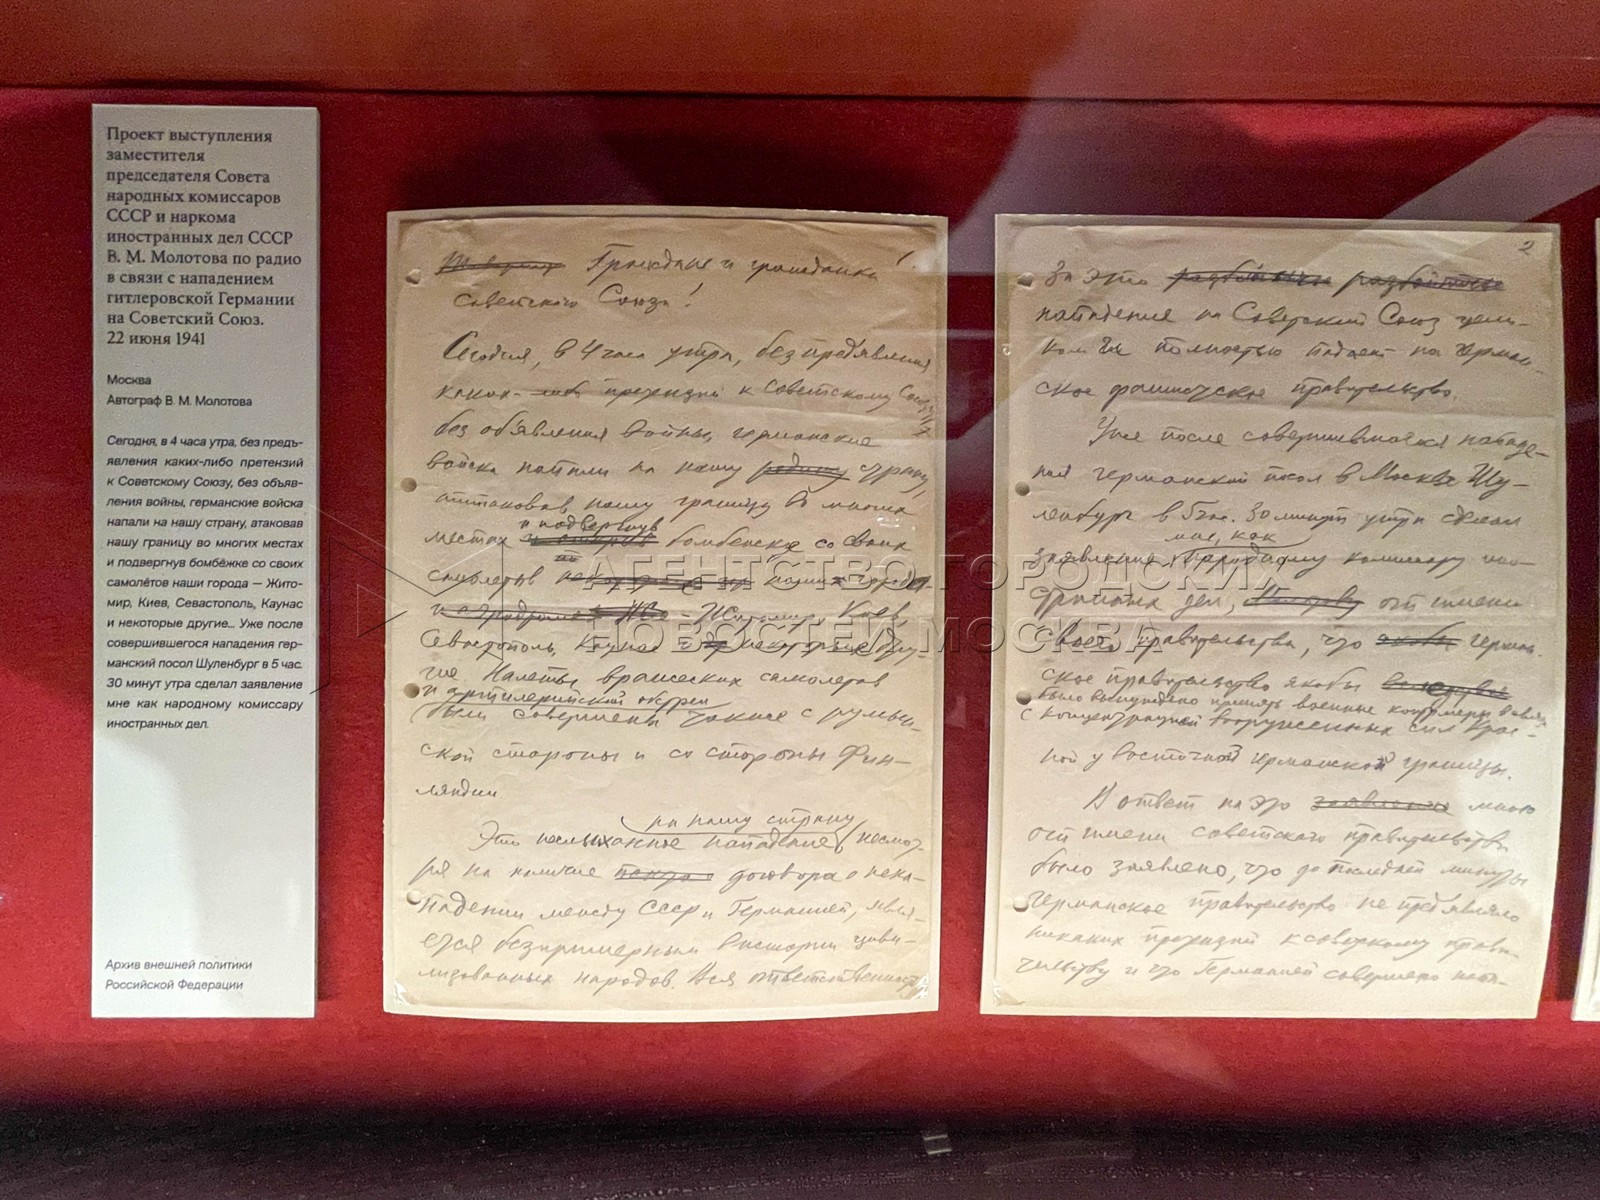 Проект выступления
заместителя
председателя Совета
народных комиссаров
СССР и наркома
иностранных дел СССР
В. М. Молотова по радио
в связи с нападением
гитлеровской Германии
на Советский Союз.
22 июня 1941
Москва
Автограф В. М. Молотова
Сегодня, в 4 часа утра, без предъ-
явления каких-либо претензий
к Советскому Союзу, без объяв-
ления войны, германские войска
напали на нашу страну, атаковав
нашу границу во многих местах
и подвергнув бомбёжке со своих
самолётов наши города — Жито-
мир, Киев, Севастополь, Каунас
и некоторые другие... Уже после
совершившегося нападения гер-
манский посол Шуленбург в 5 час.
30 минут утра сделал заявление
мне как народному комиссару
иностранных дел.
Архив внешней политики
Российской Федерации
Граждане и гражданки
советского Союза!
Сегодня, в 4 часа утра, без предъявления
каких-либо претензий к Советскому Союзу,
без объявления войны, германские
войска напали на нашу родину страну,
атаковав нашу границу во многих
и подвергнув
местах бомбежке со своих
самолетов наши города
Житомир, Киев,
Севастополь, Каунас и некоторые дру-
гие. Налеты вражеских самолетов
и артиллерийский обстрел
были совершены также с румын-
ской стороны и со стороны Фин-
ляндии
на нашу страну
Это неслыханное нападение, несмот-
ря на наличие договора о нена-
падении между СССР и Германией, явля-
ется беспримерным в истории циви-
лизованных народов. Вся ответственность
2
За это разбойничье разбойничье
нападение на Советский Союз цели-
ком и полностью падает на герман-
ское фашистское правительство.
Уже после совершившегося нападе-
ния германский посол в Москве Шу-
ленбург в 5 час. 30 минут утра сделал
мне, как
заявление народному комиссару ино-
странных дел, Молотову от имени
своего правительства, что якобы герман-
ское правительство якобы
было вынуждено принять военные контрмеры в связи
с концентрацией вооруженных сил Крас-
ной у восточной германской границы.
В ответ на это заявление мною
от имени советского правительства
было заявлено, что до последней минуты
Германское правительство не предъявляло
никаких претензий к советскому прави-
тельству и что Германией совершено напа-
АГЕНТСТВО ГОРОДСКИХ
НОВОСТЕЙ МОСКВА